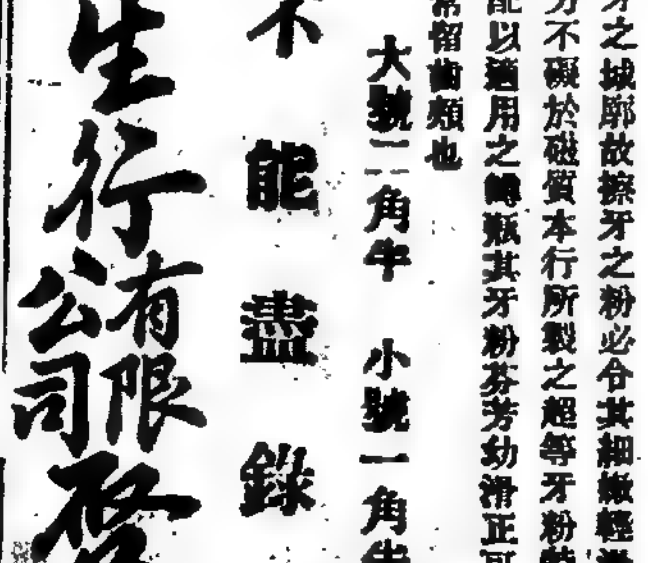 之城廓故擦牙之粉必令其細緻輕
不礙於磁質本行所製之超等牙粉
以適用之樽瓶其牙粉芬芳幼滑正可
留齒頰也
大號二角半 小號一角半
不能盡錄
生行有限公司啓